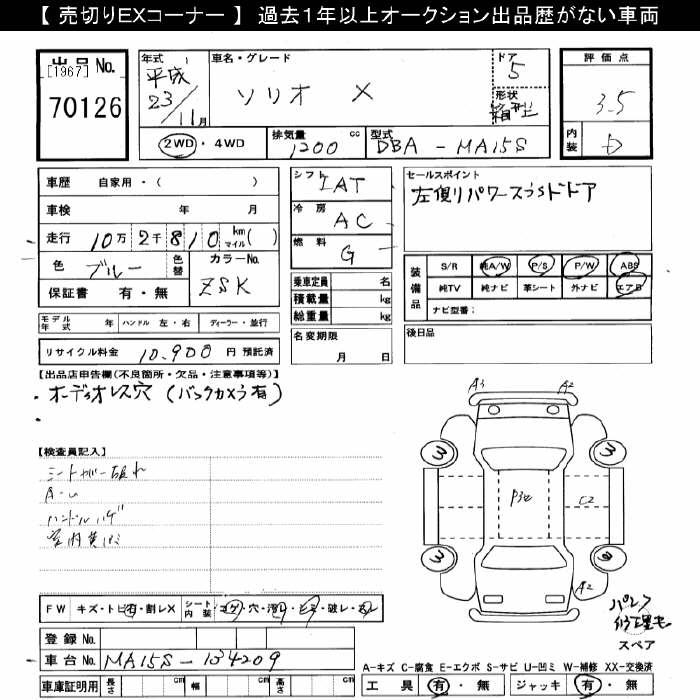 【 売切りEXコーナー 】 過去１年以上オークション出品歴がない車両
出品No.
[1967]
70126
年式
平成
23/11月
車名・グレード
ソリオ X
ドア
5
形状
箱型
評価点
3.5
内装
D
2WD ・ 4WD
排気量 1200 cc
型式 DBA - MA15S
車歴 自家用・( )
車検 年 月
走行 10万 2千 8 1 0 km マイル ( )
色 ブルー 色替
カラーNo.
ZSK
保証書 有・無
シフト IAT
冷房 AC
燃料 G
乗車定員 名
積載量 kg
総重量 kg
名変期限
月 日
セールスポイント
左側パワースラSドドア
装備品
S/R 純A/W P/S P/W ABS
純TV 純ナビ 革シート 外ナビ エアB
ナビ型番：
後日品
モデル年式 年 ハンドル 左・右 ディーラー・並行
リサイクル料金 10,900 円 預託済
【出品店申告欄(不良箇所・欠品・注意事項等)】
・オーディオレス穴 (バックカメラ有)
・
【検査員記入】
シートカバー破れ
A-U
ハンドルハゲ
室内黄
A3 A2
3 3
P3 C2
3
A2
パレス
修理モ
スペア
FW キズ・トビ有・割レX
シート内装 コゲ・穴・汚レ・ヒモ・破レ・
登録No.
車台No. MA15S-134209
車庫証明用 長さ cm 幅 cm 高さ cm
A-キズ C-腐食 E-エクボ S-サビ U-凹ミ W-補修 XX-交換済
工具 有・無 ジャッキ 有・無